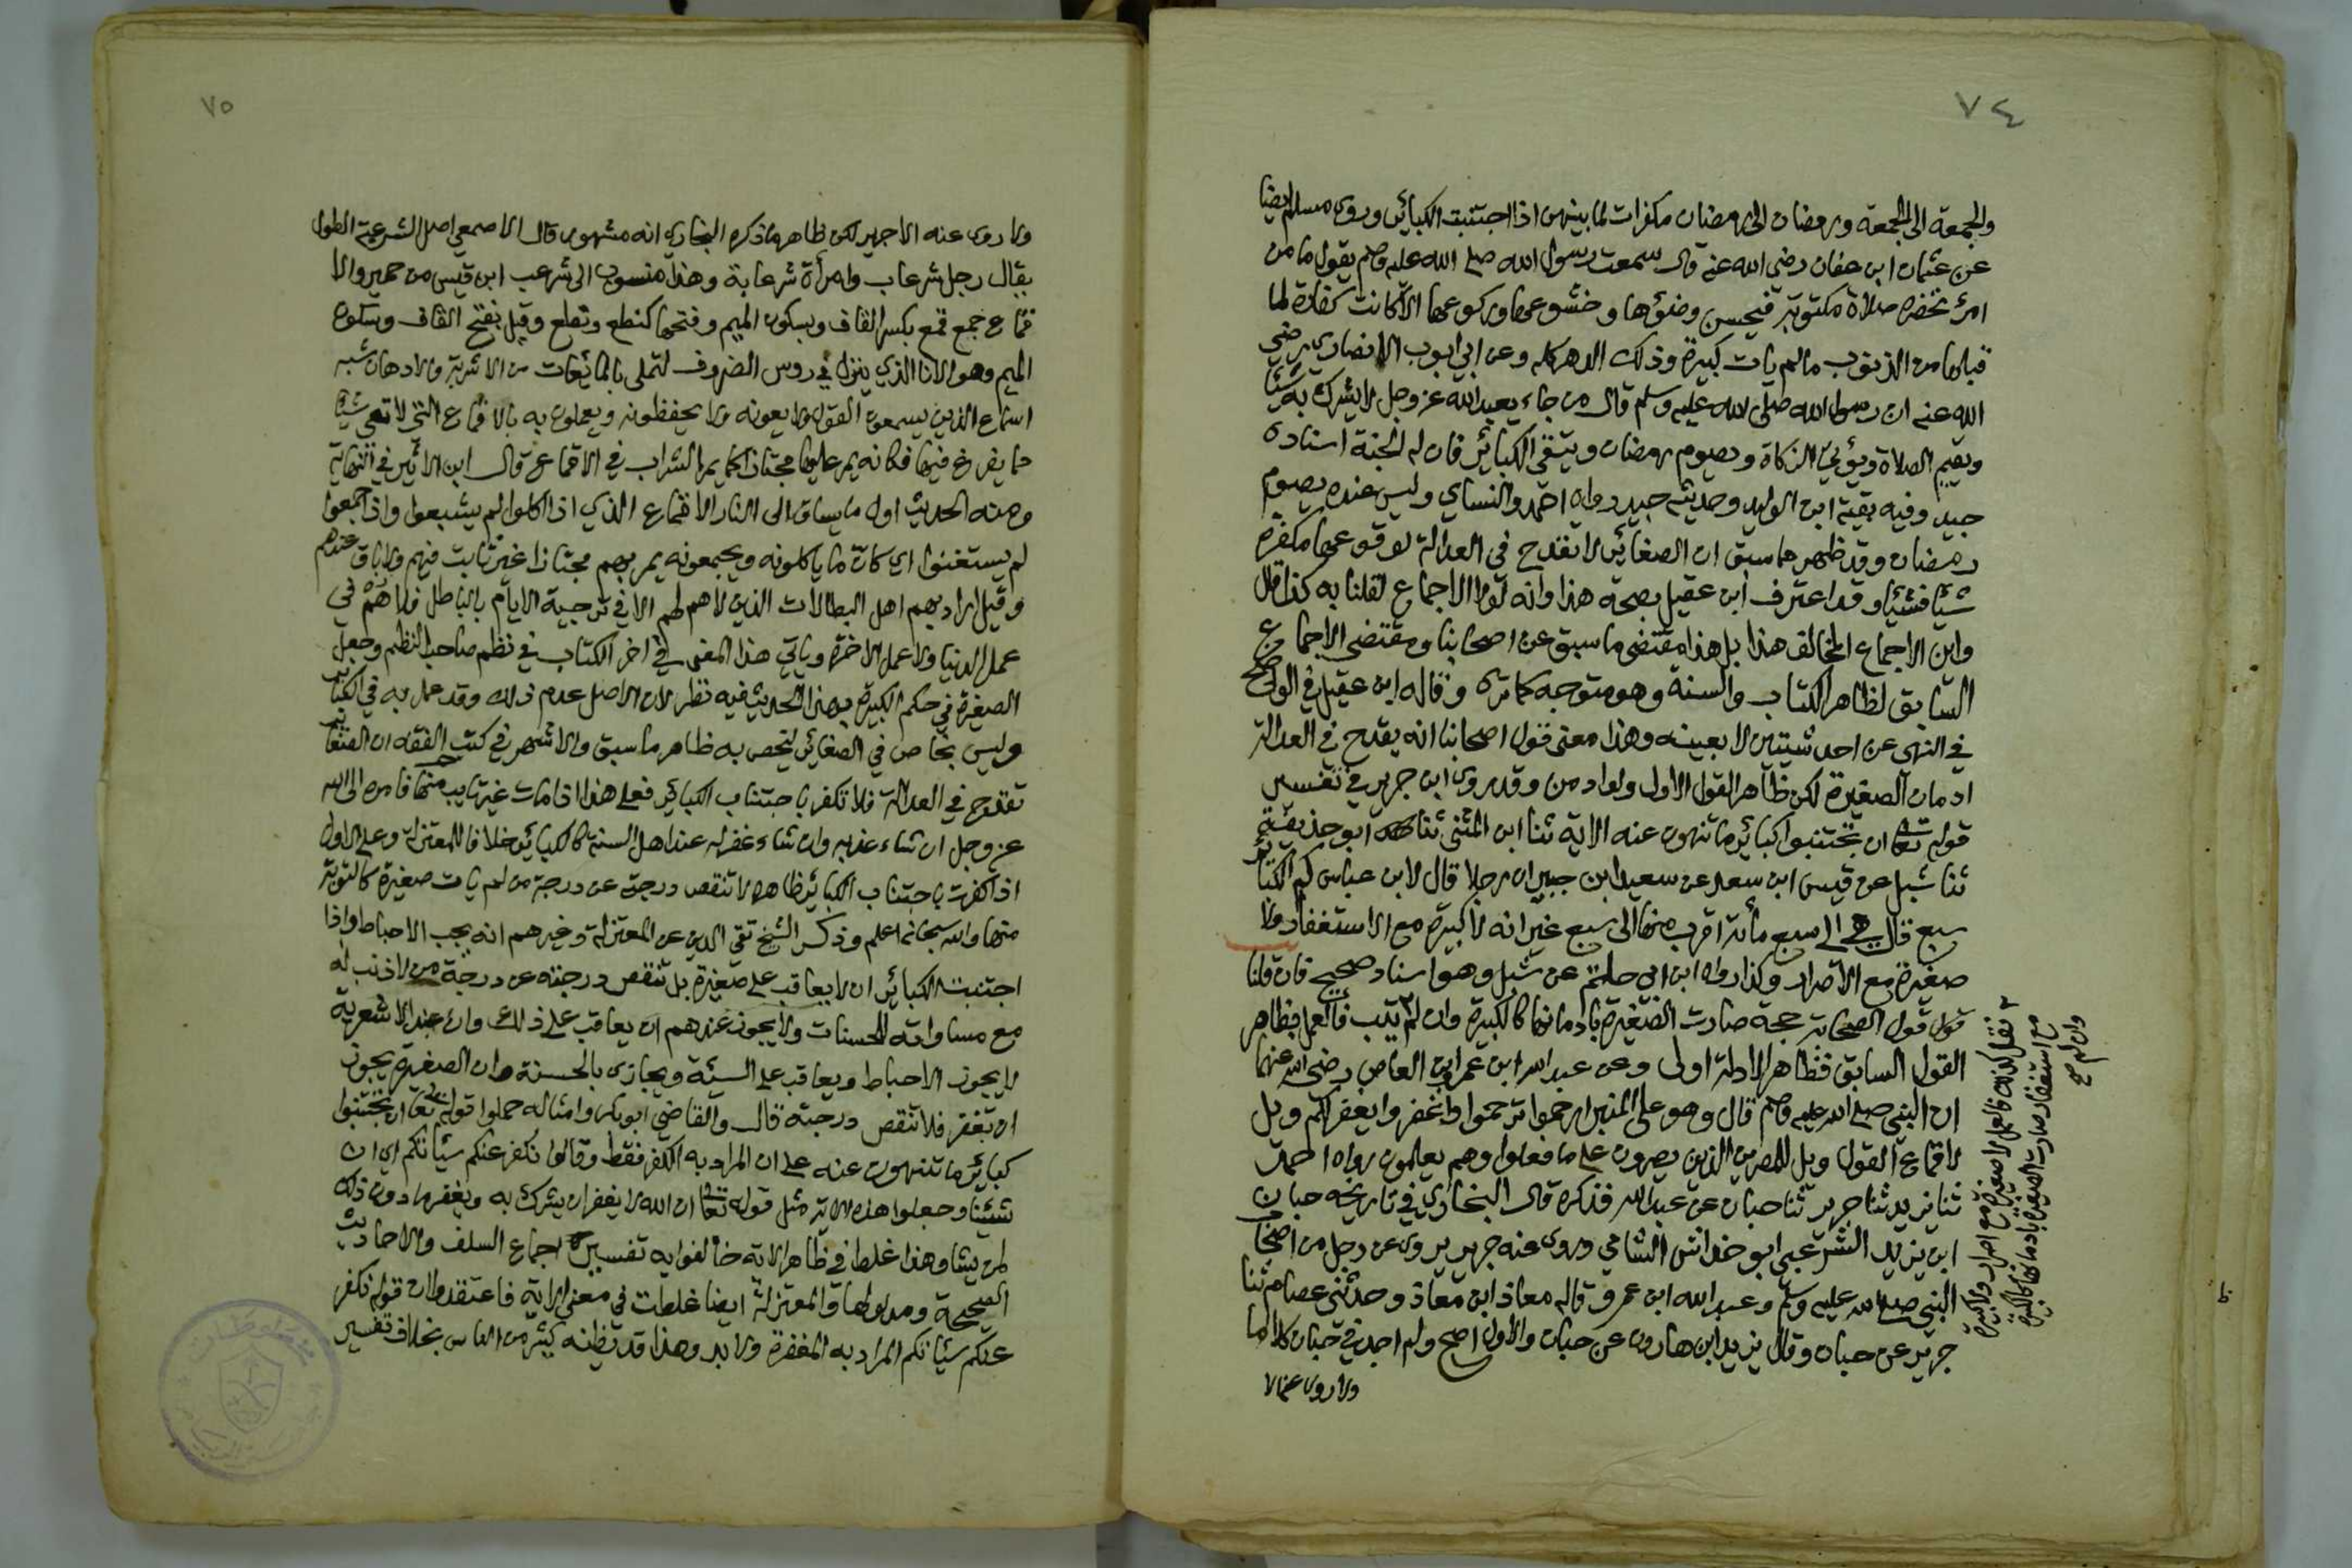 ٧٤
والجمعة الى الجمعة ورمضان الى رمضان مكفرات لما بينهن اذا اجتنبت الكبائر وروى مسلم ايضا
عن عثمان ابن عفان رضي الله عنه قال سمعت رسول الله صلى الله عليه وسلم يقول ما من
امرئ تحضره صلاة مكتوبة فيحسن وضوءها وخشوعها وركوعها الا كانت كفارة لما
قبلها من الذنوب مالم يات كبيرة وذلك الدهر كله وعن ابي ايوب الانصاري رضي
الله عنه ان رسول الله صلى الله عليه وسلم قال من جاء يعبد الله عز وجل لا يشرك به شيئا
ويقيم الصلاة ويؤتي الزكاة ويصوم رمضان ويتقي الكبائر فان له الجنة اسناده
جيد وفيه بقية ابن الوليد وحديثه جيد رواه احمد والنساي وليس عنده يصوم
رمضان وقد ظهر مما سبق ان الصغائر لا تقدح في العدالة لوقوعها مكفرة
شيئا فشيئا وقد اعترف ابن عقيل بصحة هذا وانه لولا الاجماع لقلنا به كذا قال
واين الاجماع المخالف هذا بل هذا مقتضى ما سبق عن اصحابنا ومقتضى الاجماع
السابق لظاهر الكتاب والسنة وهو متوجه كما ترى وقاله ابن عقيل في الواضح
في النهي عن احد شيئين لا بعينه وهذا معنى قول اصحابنا انه يقدح في العدالة
ادمان الصغيرة لكن ظاهر القول الاول ولو ادمن وقد روى ابن جرير في تفسير
قوله تعالى ان تجتنبوا كبائر ما تنهون عنه الاية ثنا ابن المثنى ثنا ابو حذيفة
ثنا شبل عن قيس ابن سعد عن سعيد ابن جبير ان رجلا قال لابن عباس كم الكبائر
سبع قال هي الى سبع مائة اقرب منها الى سبع غير انه لا كبيرة مع الاستغفار ولا
صغيرة مع الاصرار وكذا رواه ابن ابي حاتم عن شبل وهو اسناد صحيح فان قلنا
قول قول الصحابة حجة صارت الصغيرة بادمانها كالكبيرة وان لم يتب فالعمل بظاهر
القول السابق فظاهر الادلة اولى وعن عبد الله ابن عمرو ابن العاص رضي الله عنهما
ان النبي صلى الله عليه وسلم قال وهو على المنبر ارحموا ترحموا واغفروا يغفر لكم ويل
لاقماع القول ويل للمصرين الذين يصرون على ما فعلوا وهم يعلمون رواه احمد
ثنا يزيد ثنا جرير ثنا حبان عن عبد الله فذكره قال البخاري في تاريخه حبان
ابن يزيد الشرعبي ابو خداش الشامي وروى عنه جرير يروى عن رجل من اصحاب
النبي صلى الله عليه وسلم وعبد الله ابن عمر وقاله معاذ ابن معاذ وحدثني عصام ثنا
جرير عن حبان وقال يزيد ابن هارون عن حبان والاول اصح ولم اجد في حبان كلاما
ولا روى عنه الا
٢ فقل كذلك فالعمل لا صغيرة مع اصرار ولا كبيرة
مع استغفار صارت الصغيرة بادمانها كالكبيرة
وان لم صح
٧٥
ولا روى عنه الا جرير لكن ظاهر ما ذكره البخاري انه مشهور قال الاصمعي اصل الشرعبة الطول
يقال رجل شرعاب وامرأة شرعابة وهذا منسوب الى شرعب ابن قيس من حمير والا
قماع جمع قمع بكسر القاف وبسكون الميم وفتحها كنطع ونطع وقيل بفتح القاف وسكون
الميم وهو الانا الذي ينزل في روس الضروف لتملى بالمائعات من الاشربة والادهان شبه
اسماع الذين يسمعون القول ولا يعونه ولا يحفظونه ويعملون به بالاقماع التي لا تعي شيئا
مما يفرغ فيها فكانه يمر عليها مجتازا كما يمر الشراب في الاقماع قال ابن الاثير في النهاية
ومنه الحديث اول ما يساق الى النار الاقماع الذي اذا اكلوا لم يشبعوا واذا جمعوا
لم يستغنوا اي كان ما ياكلونه ويجمعونه يمر بهم مجتازا غير ثابت فيهم ولا باق عندهم
وقيل اراد بهم اهل البطالات الذين لا هم لهم الا في ترجية الايام بالباطل فلا هم في
عمل الدنيا ولا عمل الاخرة وياتي هذا المعنى في اخر الكتاب في نظم صاحب النظم وجعل
الصغيرة في حكم الكبيرة بهذا الحديث فيه نظر لان الاصل عدم ذلك وقد عمل به في الكبائر
وليس بخاص في الصغائر ليخص به ظاهر ما سبق والاشهر في كتب الفقه ان الصغائر
تقدح في العدالة فلا تكفر باجتناب الكبائر فعلى هذا اذا مات غير تايب منها فامره الى الله
عز وجل ان شاء عذبه وان شاء غفر له عند اهل السنة كالكبائر خلافا للمعتزلة وعلى الاول
اذا كفرت باجتناب الكبائر ظاهره لا تنقص درجته عن درجة من لم يات صغيرة كالتوبة
منها والله سبحانه اعلم وذكر الشيخ تقي الدين عن المعتزلة وغيرهم انه يجب الاحباط واذا
اجتنبت الكبائر ان لا يعاقب على صغيرة بل تنقص درجته عن درجة من لا ذنب له
مع مساواته للحسنات ولا يجوز عندهم ان يعاقب على ذلك وان عند الاشعرية
لا يجوز الاحباط ويعاقب على السيئة ويجازى بالحسنة وان الصغيرة يجوز
ان تغفر فلا تنقص درجته قال والقاضي ابو بكر وامثاله حملوا قوله تعالى ان تجتنبوا
كبائر ما تنهون عنه على ان المراد به الكفر فقط وقالوا نكفر عنكم سيئاتكم اي ان
شيئنا وجعلوا هذه الاية مثل قوله تعالى ان الله لا يغفر ان يشرك به ويغفر ما دون ذلك
لمن يشا وهذا غلط في ظاهر الاية خالفوا به تفسير اجماع السلف والاحاديث
الصحيحة ومدلولها والمعتزلة ايضا غلطت في معنى الاية فاعتقدوا ان قوله نكفر
عنكم سيئاتكم المراد به المغفرة ولا بد وهذا قد يظنه كثير من الناس بخلاف تفسير